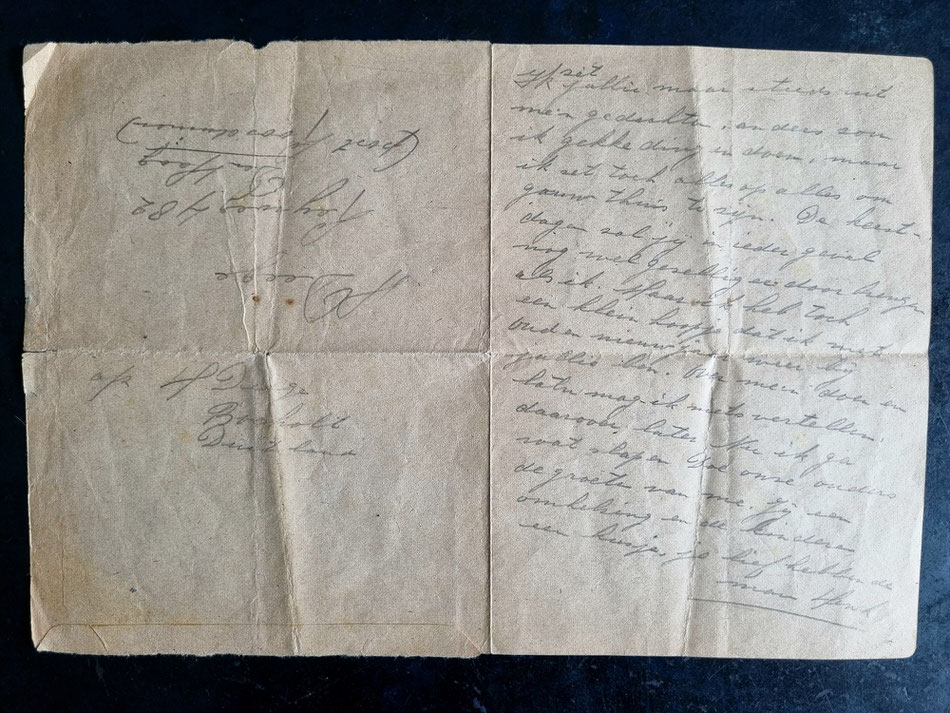 Ik zet jullie maar steeds uit
mijn gedachten, anders zou
ik gekke dingen doen, maar
ik zet toch alles op alles om
gauw thuis te zijn. De kerst-
dagen zal jij in ieder geval
nog wel gezellig er door brengen
als ik. Maar ik heb toch
een klein hoopje dat ik met
oud en nieuwjaar weer bij
jullie ben. Over mein doen en
laten mag ik niets vertellen.
daarover later. Nu ik ga
wat slapen Doe onze ouders
de groeten van me. Jij een
omhelzing en de kinderen
een kusje, je liefhebbende
man Henk
H
482
Den Haag
afz H
Bocholt
Duitsland